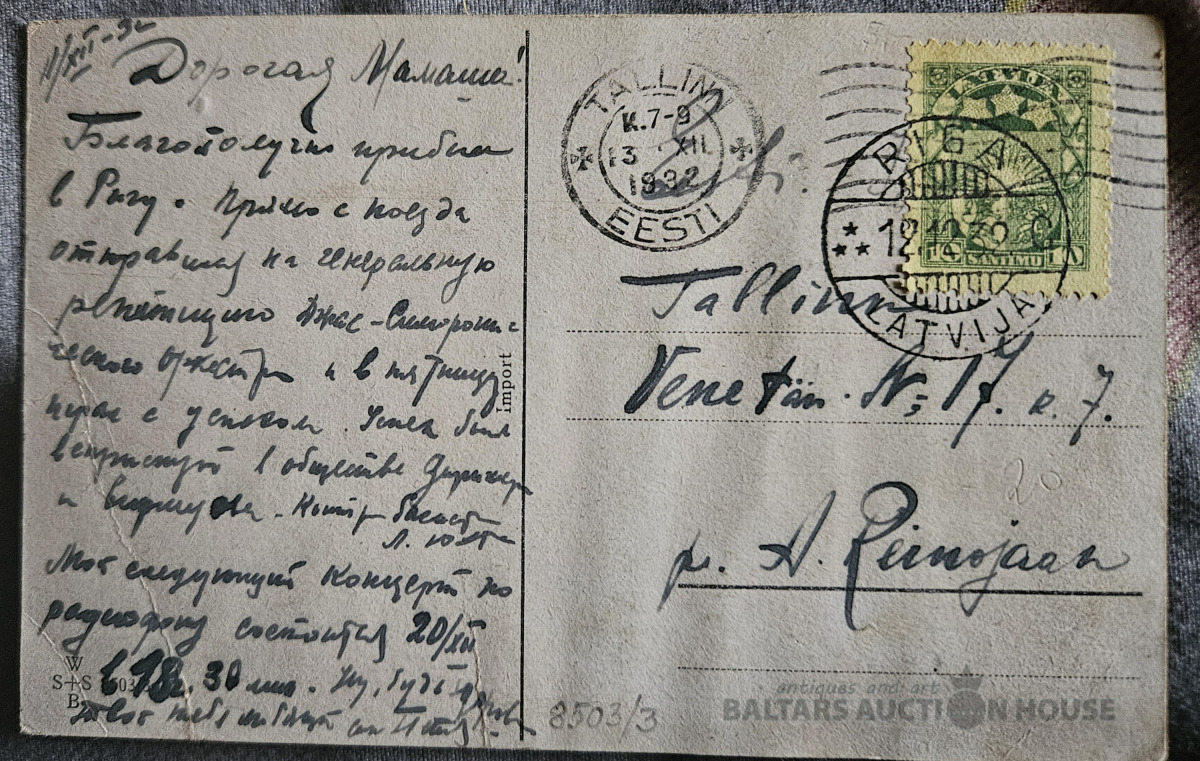 11/XII-32
Дорогая Мамаша!
Благополучно прибыл
в Ригу. Прямо с поезда
отправился на генеральную
репетицию Джас-Симфони-
ческого оркестра и в пятницу
играл с успехом. Успех был
в обществе Дирижера
и Виртуоза - Контр басист
Мой следующий концерт по
радиофону состоится 20/XII
в 18 ч. 30 мин. Ну, будь здорова
тебя любящий сын
Import
W
S+S
B
TALLINN
K.7-9
13 XII.
1932
EESTI
LATVIJA
SANTIMU
RIGA
12.12.32
LATVIJA
Tallinn
Venetän. Nr 17. k. 7.
pr. A. Reinojaan
20
8503/3
antiques and art
BALTARS AUCTION HOUSE